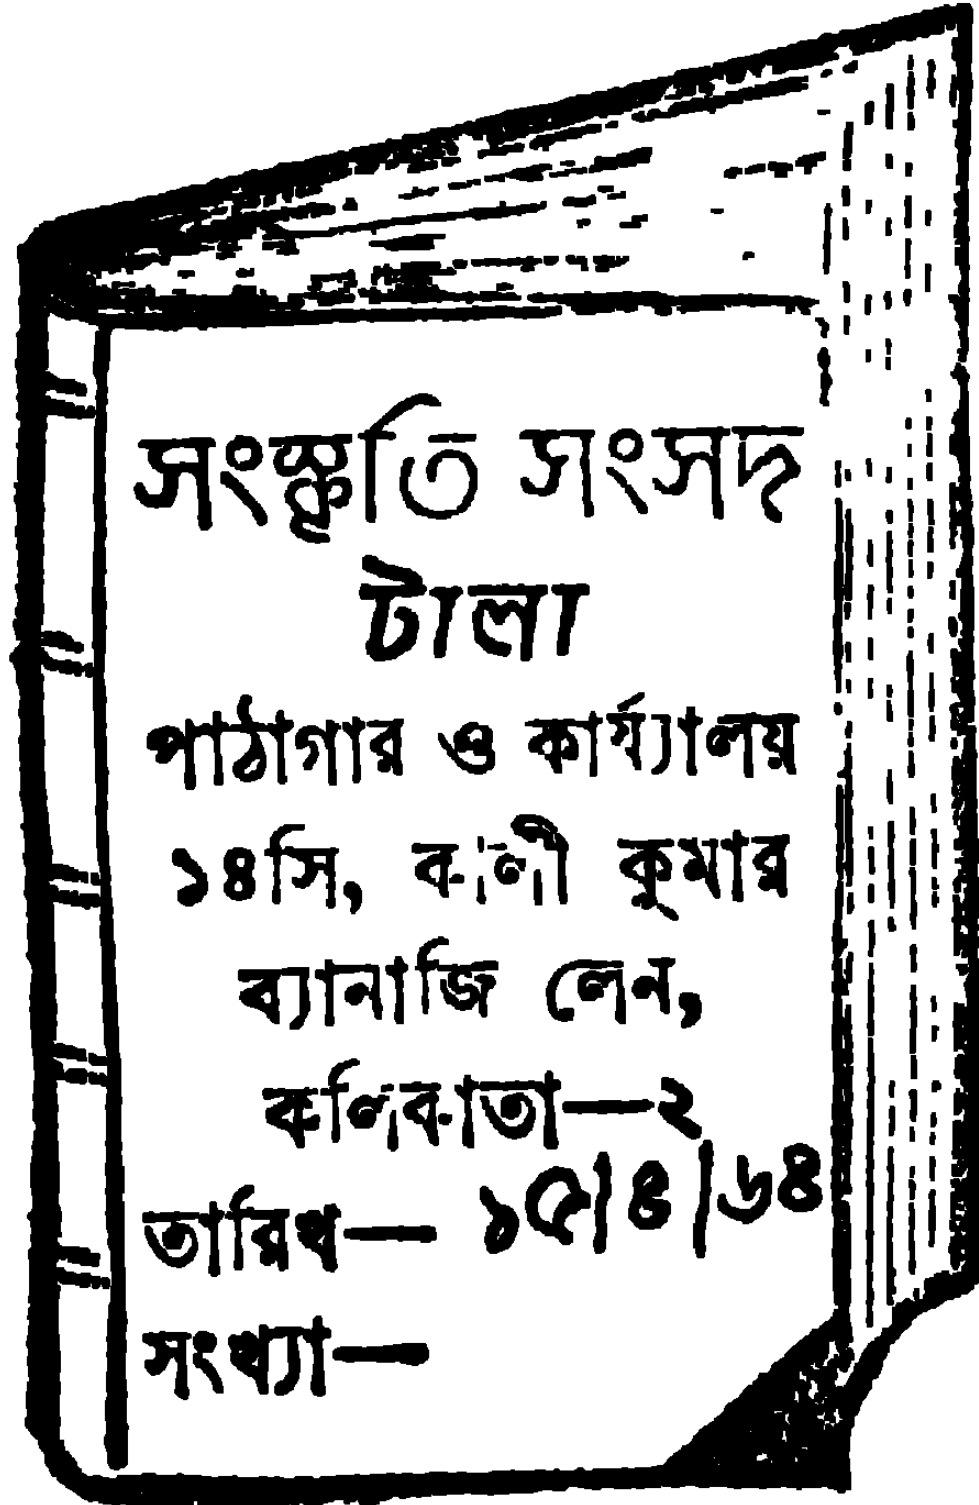 সংস্কৃতি সংসদ
টালা
পাঠাগার ও কার্য্যালয়
১৪সি, কালী কুমার
ব্যানার্জি লেন,
কলিকাতা—২
তারিখ— ১৫|৪|৬৪
সংখ্যা—